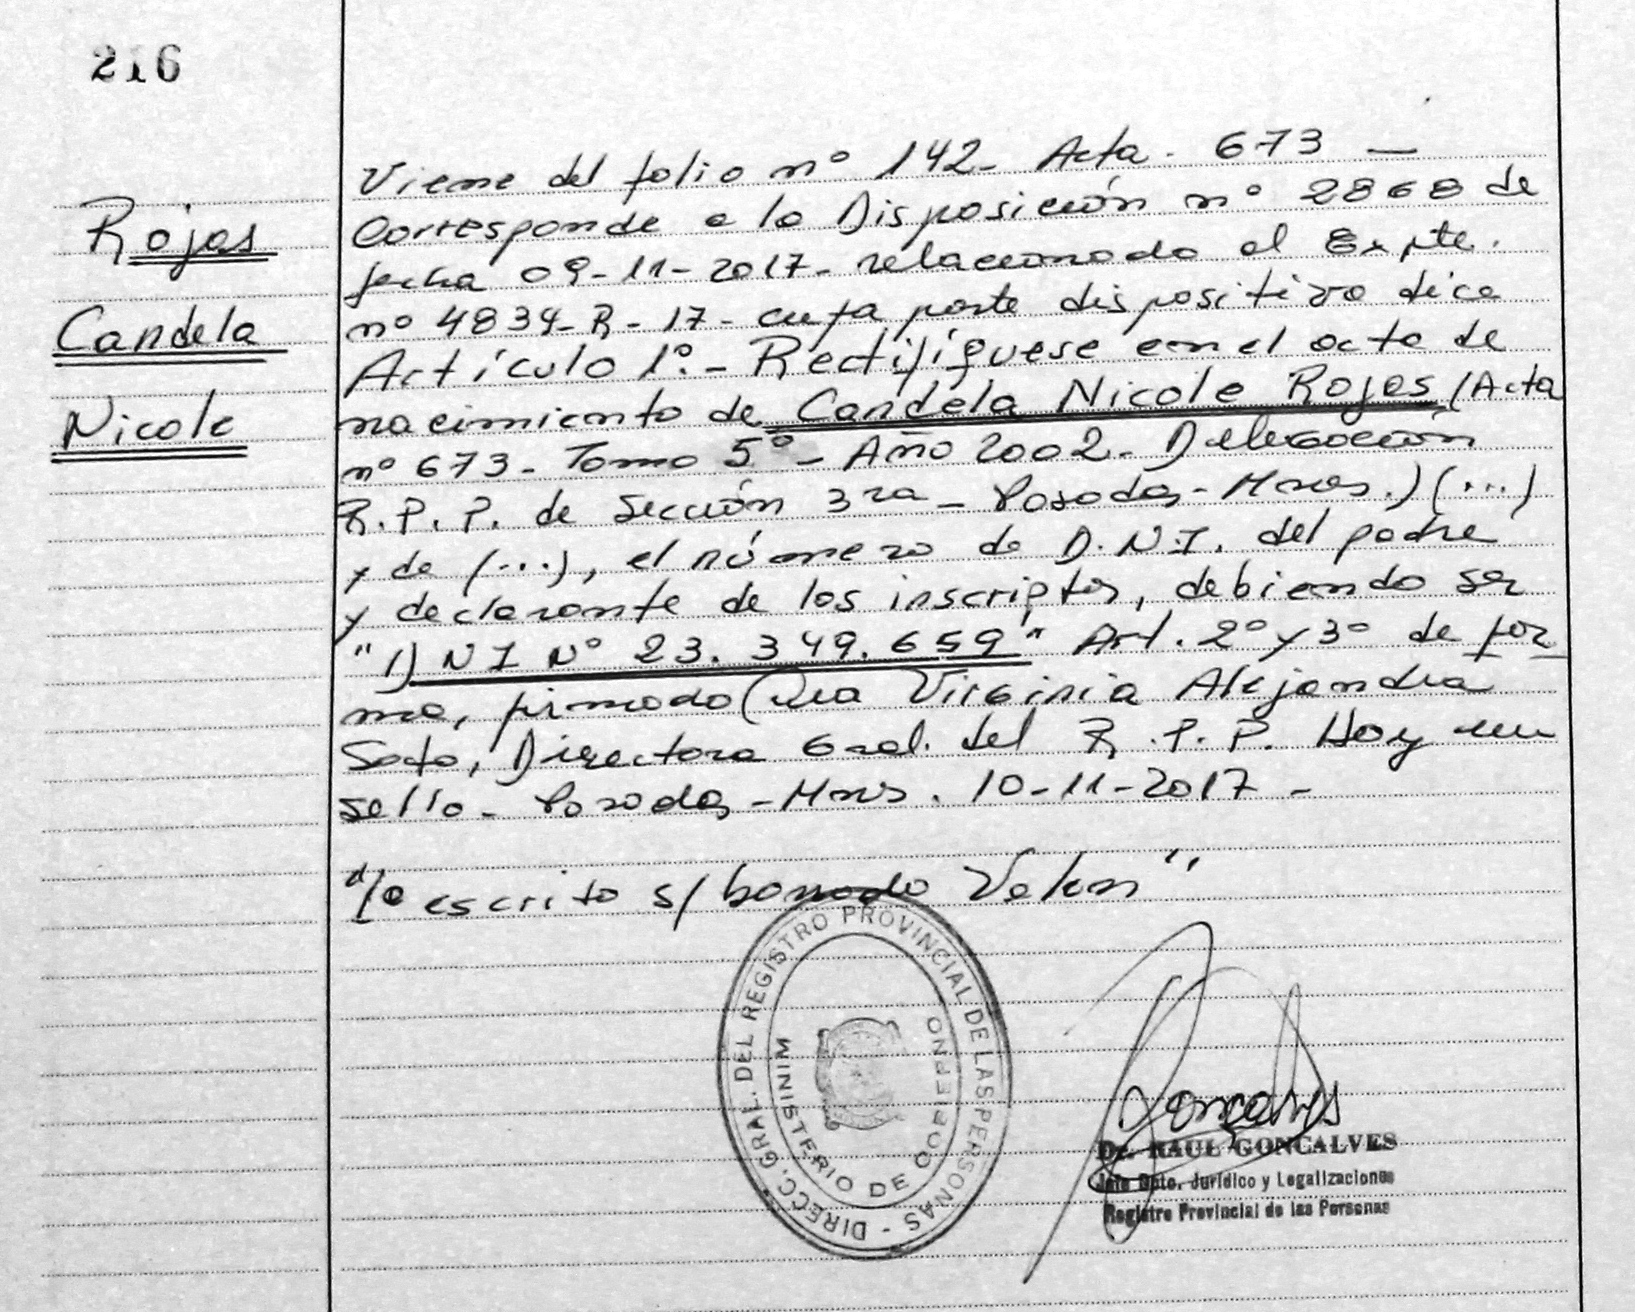 216
Rojas
Candela
Nicole
Viene del folio nº 142- Acta. 673 —
Corresponde a la Disposición nº 2868 de
fecha 09-11-2017- relacionado al Expte.
nº 4834-R-17- cuya parte dispositiva dice
Artículo 1º.- Rectifíquese en el acta de
nacimiento de Candela Nicole Rojas (Acta
nº 673- Tomo 5º- Año 2002- Delegación
R.P.P. de Sección 3ra - Posadas- Mnes.) (...)
y de (...), el número de D.N.I. del padre
y declarante de los inscriptos, debiendo ser
"DNI Nº 23.349.659" Art. 2º y 3º de for
ma, firmado Dra Virginia Alejandra
Soto, Directora Gral. del R.P.P. Hay un
sello- Posadas-Mnes. 10-11-2017 -
"lo escrito s/ borrado Valen"
DIRECC. GRAL. DEL REGISTRO PROVINCIAL DE LAS PERSONAS -
MINISTERIO DE GOBIERNO
Goncalves
Dr. RAUL GONCALVES
Jefe Dpto. Jurídico y Legalizaciones
Registro Provincial de las Personas